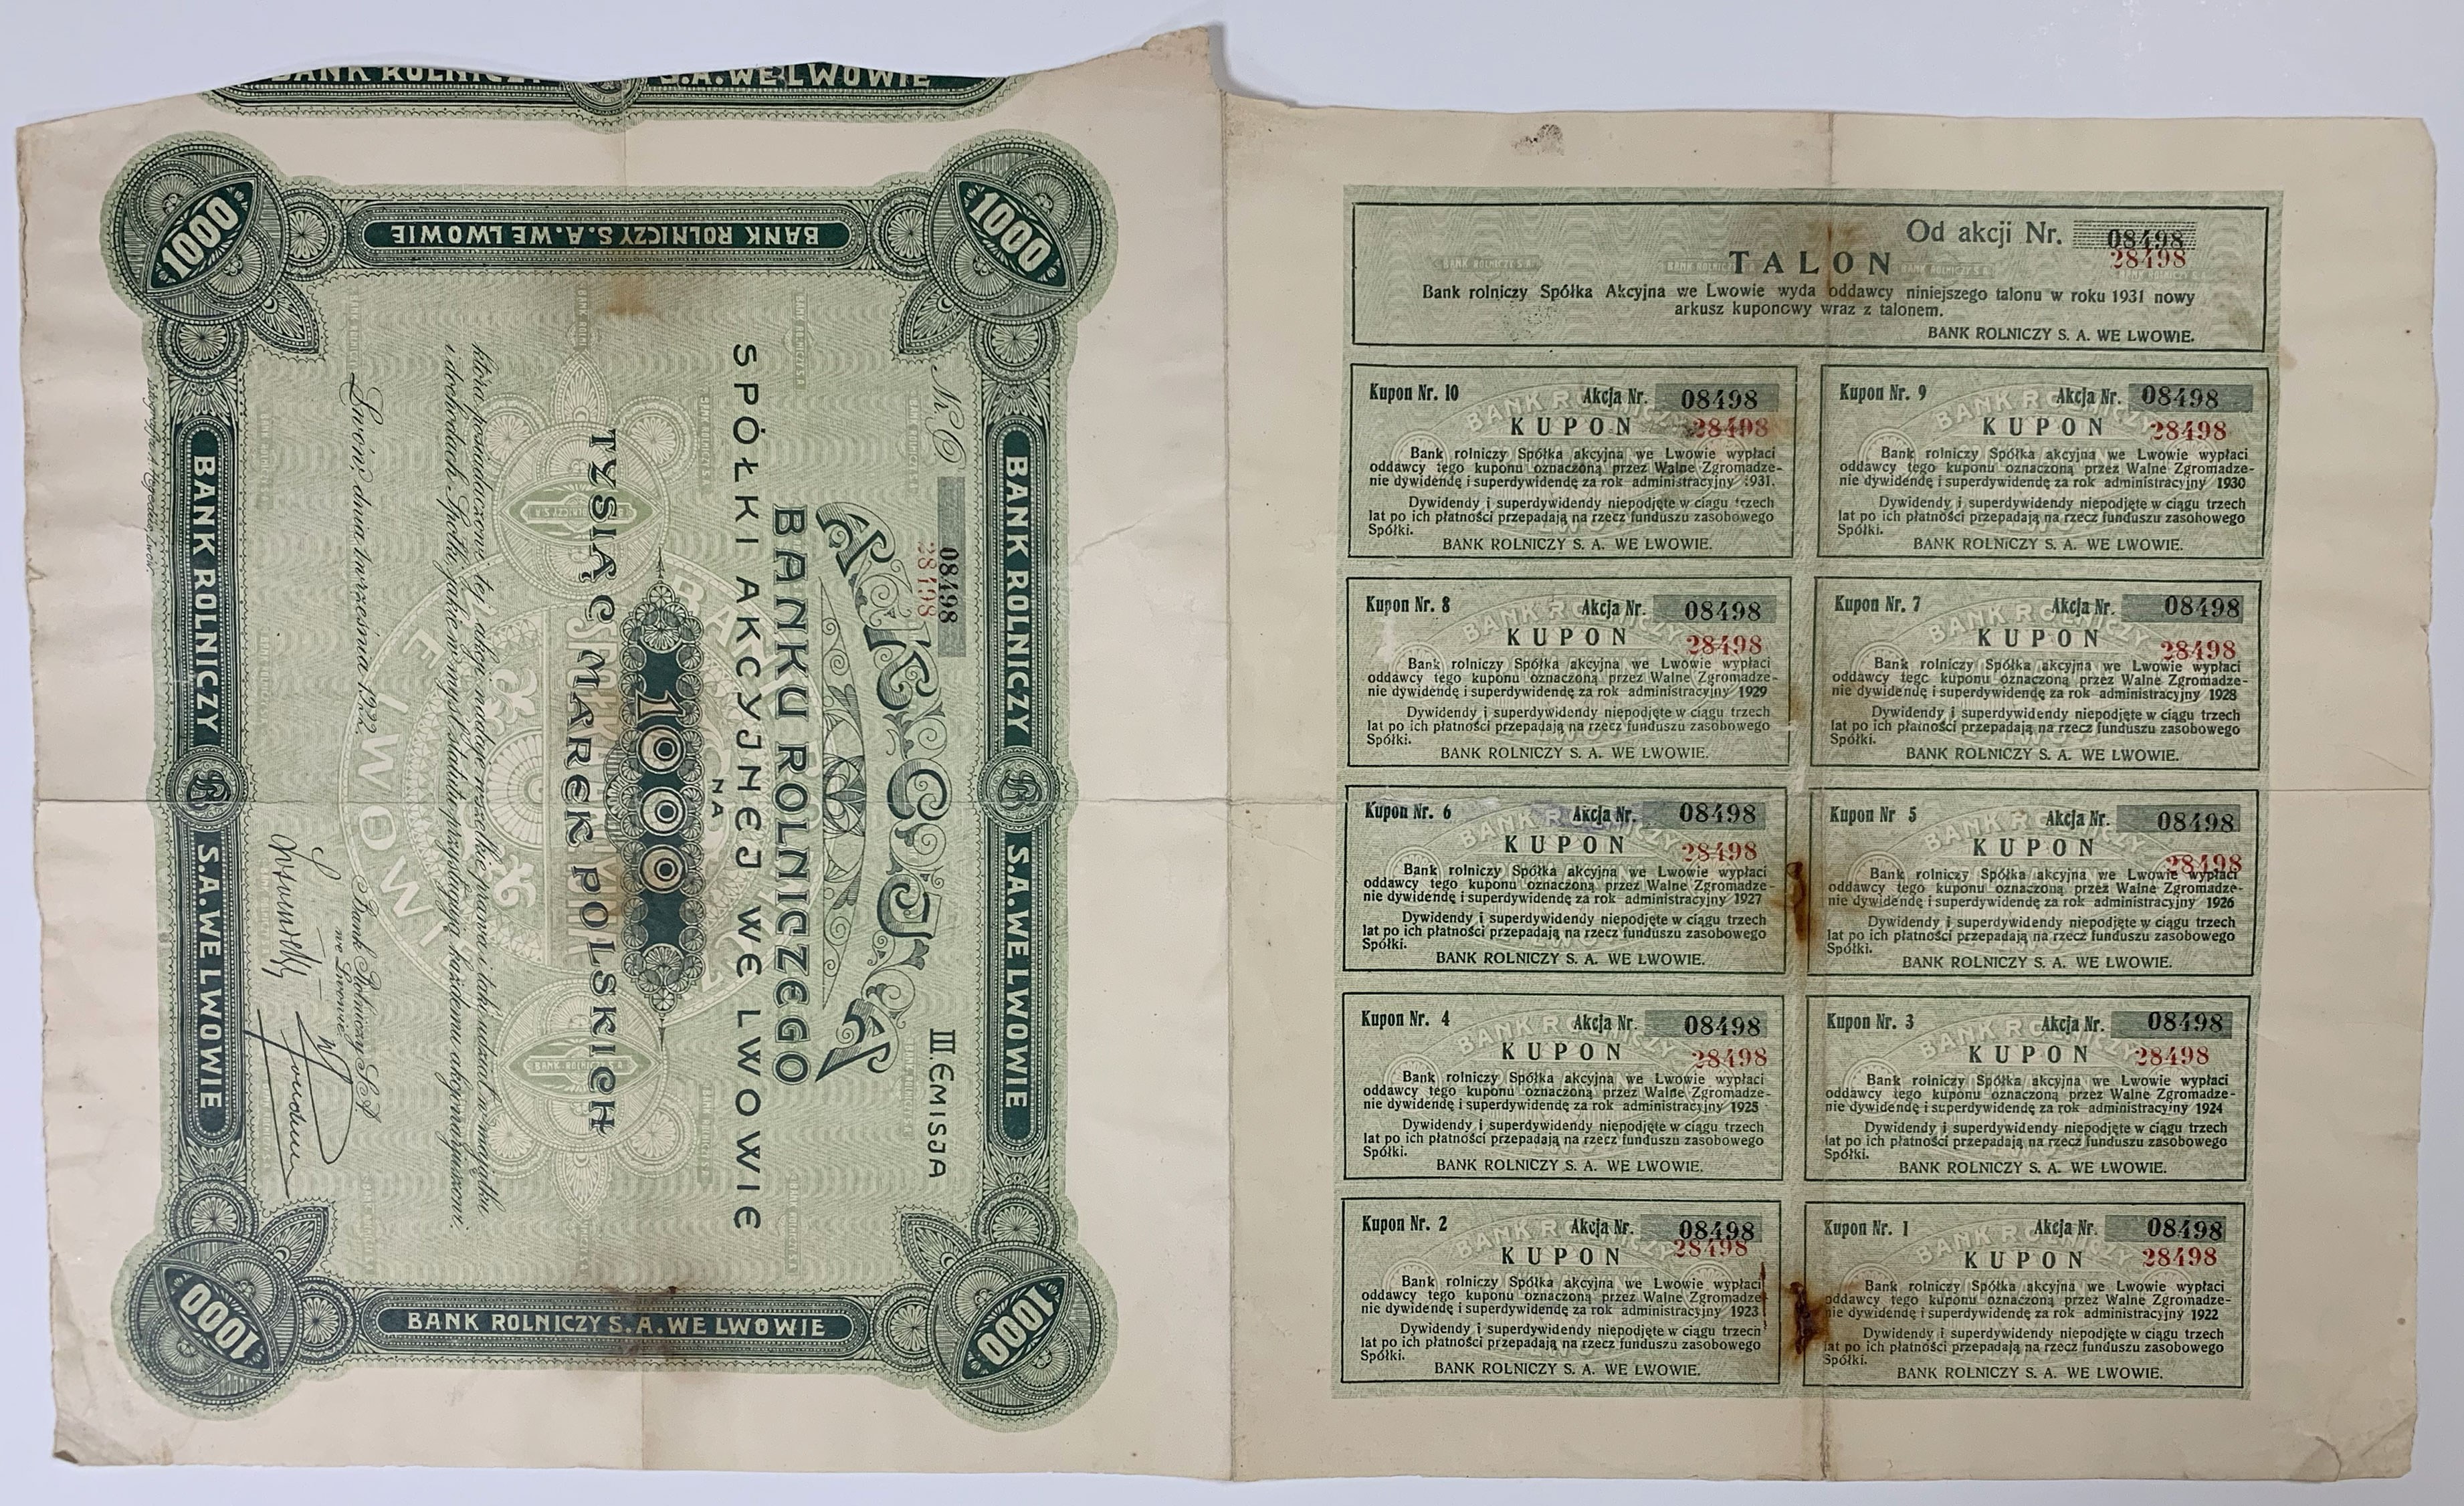 BANK ROLNICZY S.A. WE LWOWIE
1000
1000
BANK ROLNICZY S.A. WE LWOWIE
BANK ROLNICZY S.A. WE LWOWIE
BANK ROLNICZY S.A. WE LWOWIE
BANK ROLNICZY S.A. WE LWOWIE
1000
1000
08498
III. EMISJA
28498
AKCJA
BANKU ROLNICZEGO
SPÓŁKI AKCYJNEJ WE LWOWIE
NA
1000
TYSIĄC MAREK POLSKICH
która posiadaczowi tej akcji nadaje wszelkie prawa i taki udział w majątku
i dochodach Spółki, jakie w myśl statutu przysługują każdemu akcyonaryuszowi.
Lwów, dnia 1 września 1922.
Bank Rolniczy S.A.
we Lwowie
Od akcji Nr. 08498
28498
TALON
Bank rolniczy Spółka Akcyjna we Lwowie wyda oddawcy niniejszego talonu w roku 1931 nowy
arkusz kuponowy wraz z talonem.
BANK ROLNICZY S. A. WE LWOWIE.
Kupon Nr. 10 Akcja Nr. 08498
KUPON 28498
Bank rolniczy Spółka akcyjna we Lwowie wypłaci
oddawcy tego kuponu oznaczoną przez Walne Zgromadze-
nie dywidendę i superdywidendę za rok administracyjny 1931.
Dywidendy i superdywidendy niepodjęte w ciągu trzech
lat po ich płatności przepadają na rzecz funduszu zasobowego
Spółki.
BANK ROLNICZY S. A. WE LWOWIE.
Kupon Nr. 9 Akcja Nr. 08498
KUPON 28498
Bank rolniczy Spółka akcyjna we Lwowie wypłaci
oddawcy tego kuponu oznaczoną przez Walne Zgromadze-
nie dywidendę i superdywidendę za rok administracyjny 1930
Dywidendy i superdywidendy niepodjęte w ciągu trzech
lat po ich płatności przepadają na rzecz funduszu zasobowego
Spółki.
BANK ROLNICZY S. A. WE LWOWIE.
Kupon Nr. 8 Akcja Nr. 08498
KUPON 28498
Bank rolniczy Spółka akcyjna we Lwowie wypłaci
oddawcy tego kuponu oznaczoną przez Walne Zgromadze-
nie dywidendę i superdywidendę za rok administracyjny 1929
Dywidendy i superdywidendy niepodjęte w ciągu trzech
lat po ich płatności przepadają na rzecz funduszu zasobowego
Spółki.
BANK ROLNICZY S. A. WE LWOWIE.
Kupon Nr. 7 Akcja Nr. 08498
KUPON 28498
Bank rolniczy Spółka akcyjna we Lwowie wypłaci
oddawcy tegc kuponu oznaczoną przez Walne Zgromadze-
nie dywidendę i superdywidendę za rok administracyjny 1928
Dywidendy i superdywidendy niepodjęte w ciągu trzech
lat po ich płatności przepadają na rzecz funduszu zasobowego
Spółki.
BANK ROLNICZY S. A. WE LWOWIE.
Kupon Nr. 6 Akcja Nr. 08498
KUPON 28498
Bank rolniczy Spółka akcyjna we Lwowie wypłaci
oddawcy tego kuponu oznaczoną przez Walne Zgromadze-
nie dywidendę i superdywidendę za rok administracyjny 1927
Dywidendy i superdywidendy niepodjęte w ciągu trzech
lat po ich płatności przepadają na rzecz funduszu zasobowego
Spółki.
BANK ROLNICZY S. A. WE LWOWIE.
Kupon Nr 5 Akcja Nr. 08498
KUPON 28498
Bank rolniczy Spółka akcyjna we Lwowie wypłaci
oddawcy tego kuponu oznaczoną przez Walne Zgromadze-
nie dywidendę i superdywidendę za rok administracyjny 1926
Dywidendy i superdywidendy niepodjęte w ciągu trzech
lat po ich płatności przepadają na rzecz funduszu zasobowego
Spółki.
BANK ROLNICZY S. A. WE LWOWIE.
Kupon Nr. 4 Akcja Nr. 08498
KUPON 28498
Bank rolniczy Spółka akcyjna we Lwowie wypłaci
oddawcy tego kuponu oznaczoną przez Walne Zgromadze-
nie dywidendę i superdywidendę za rok administracyjny 1925
Dywidendy i superdywidendy niepodjęte w ciągu trzech
lat po ich płatności przepadają na rzecz funduszu zasobowego
Spółki.
BANK ROLNICZY S. A. WE LWOWIE.
Kupon Nr. 3 Akcja Nr. 08498
KUPON 28498
Bank rolniczy Spółka akcyjna we Lwowie wypłaci
oddawcy tego kuponu oznaczoną przez Walne Zgromadze-
nie dywidendę i superdywidendę za rok administracyjny 1924
Dywidendy i superdywidendy niepodjęte w ciągu trzech
lat po ich płatności przepadają na rzecz funduszu zasobowego
Spółki.
BANK ROLNICZY S. A. WE LWOWIE.
Kupon Nr. 2 Akcja Nr. 08498
KUPON 28498
Bank rolniczy Spółka akcyjna we Lwowie wypłaci
oddawcy tego kuponu oznaczoną przez Walne Zgromadze-
nie dywidendę i superdywidendę za rok administracyjny 1923
Dywidendy i superdywidendy niepodjęte w ciągu trzech
lat po ich płatności przepadają na rzecz funduszu zasobowego
Spółki.
BANK ROLNICZY S. A. WE LWOWIE.
Kupon Nr. 1 Akcja Nr. 08498
KUPON 28498
Bank rolniczy Spółka akcyjna we Lwowie wypłaci
oddawcy tego kuponu oznaczoną przez Walne Zgromadze-
nie dywidendę i superdywidendę za rok administracyjny 1922
Dywidendy i superdywidendy niepodjęte w ciągu trzech
lat po ich płatności przepadają na rzecz funduszu zasobowego
Spółki.
BANK ROLNICZY S. A. WE LWOWIE.